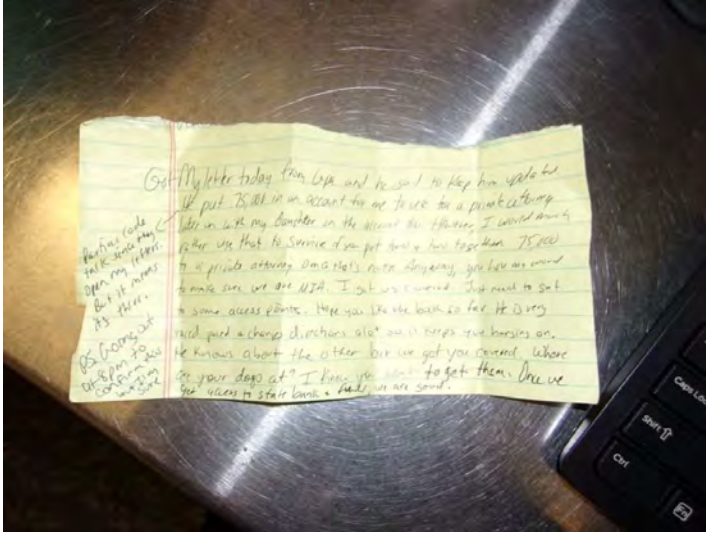 Got My letter today from and he said to keep him updated
put 75,000 in an account for me to use for a private attorney
later on with my Daughter on the account too. However, I would much
rather use that to survive if you put two & two together. 75,000
to a private attorney that's nuts. Anyway, you have my word
to make sure we are MIA. I got us covered. Just need to get
to some access points. Hope you like the book so far. It is very
paced & changes directions alot so it keeps you hanging on.
He knows about the other but we got you covered. Where
are your dogs at? I know you want to get them. Once we
get access to state bank & we are good.
code
talk since they
open my letters.
But it means
it's there.
PS Going out
at 8 pm to
confirm
some
Caps Lo
Shift
Ctrl
Fn